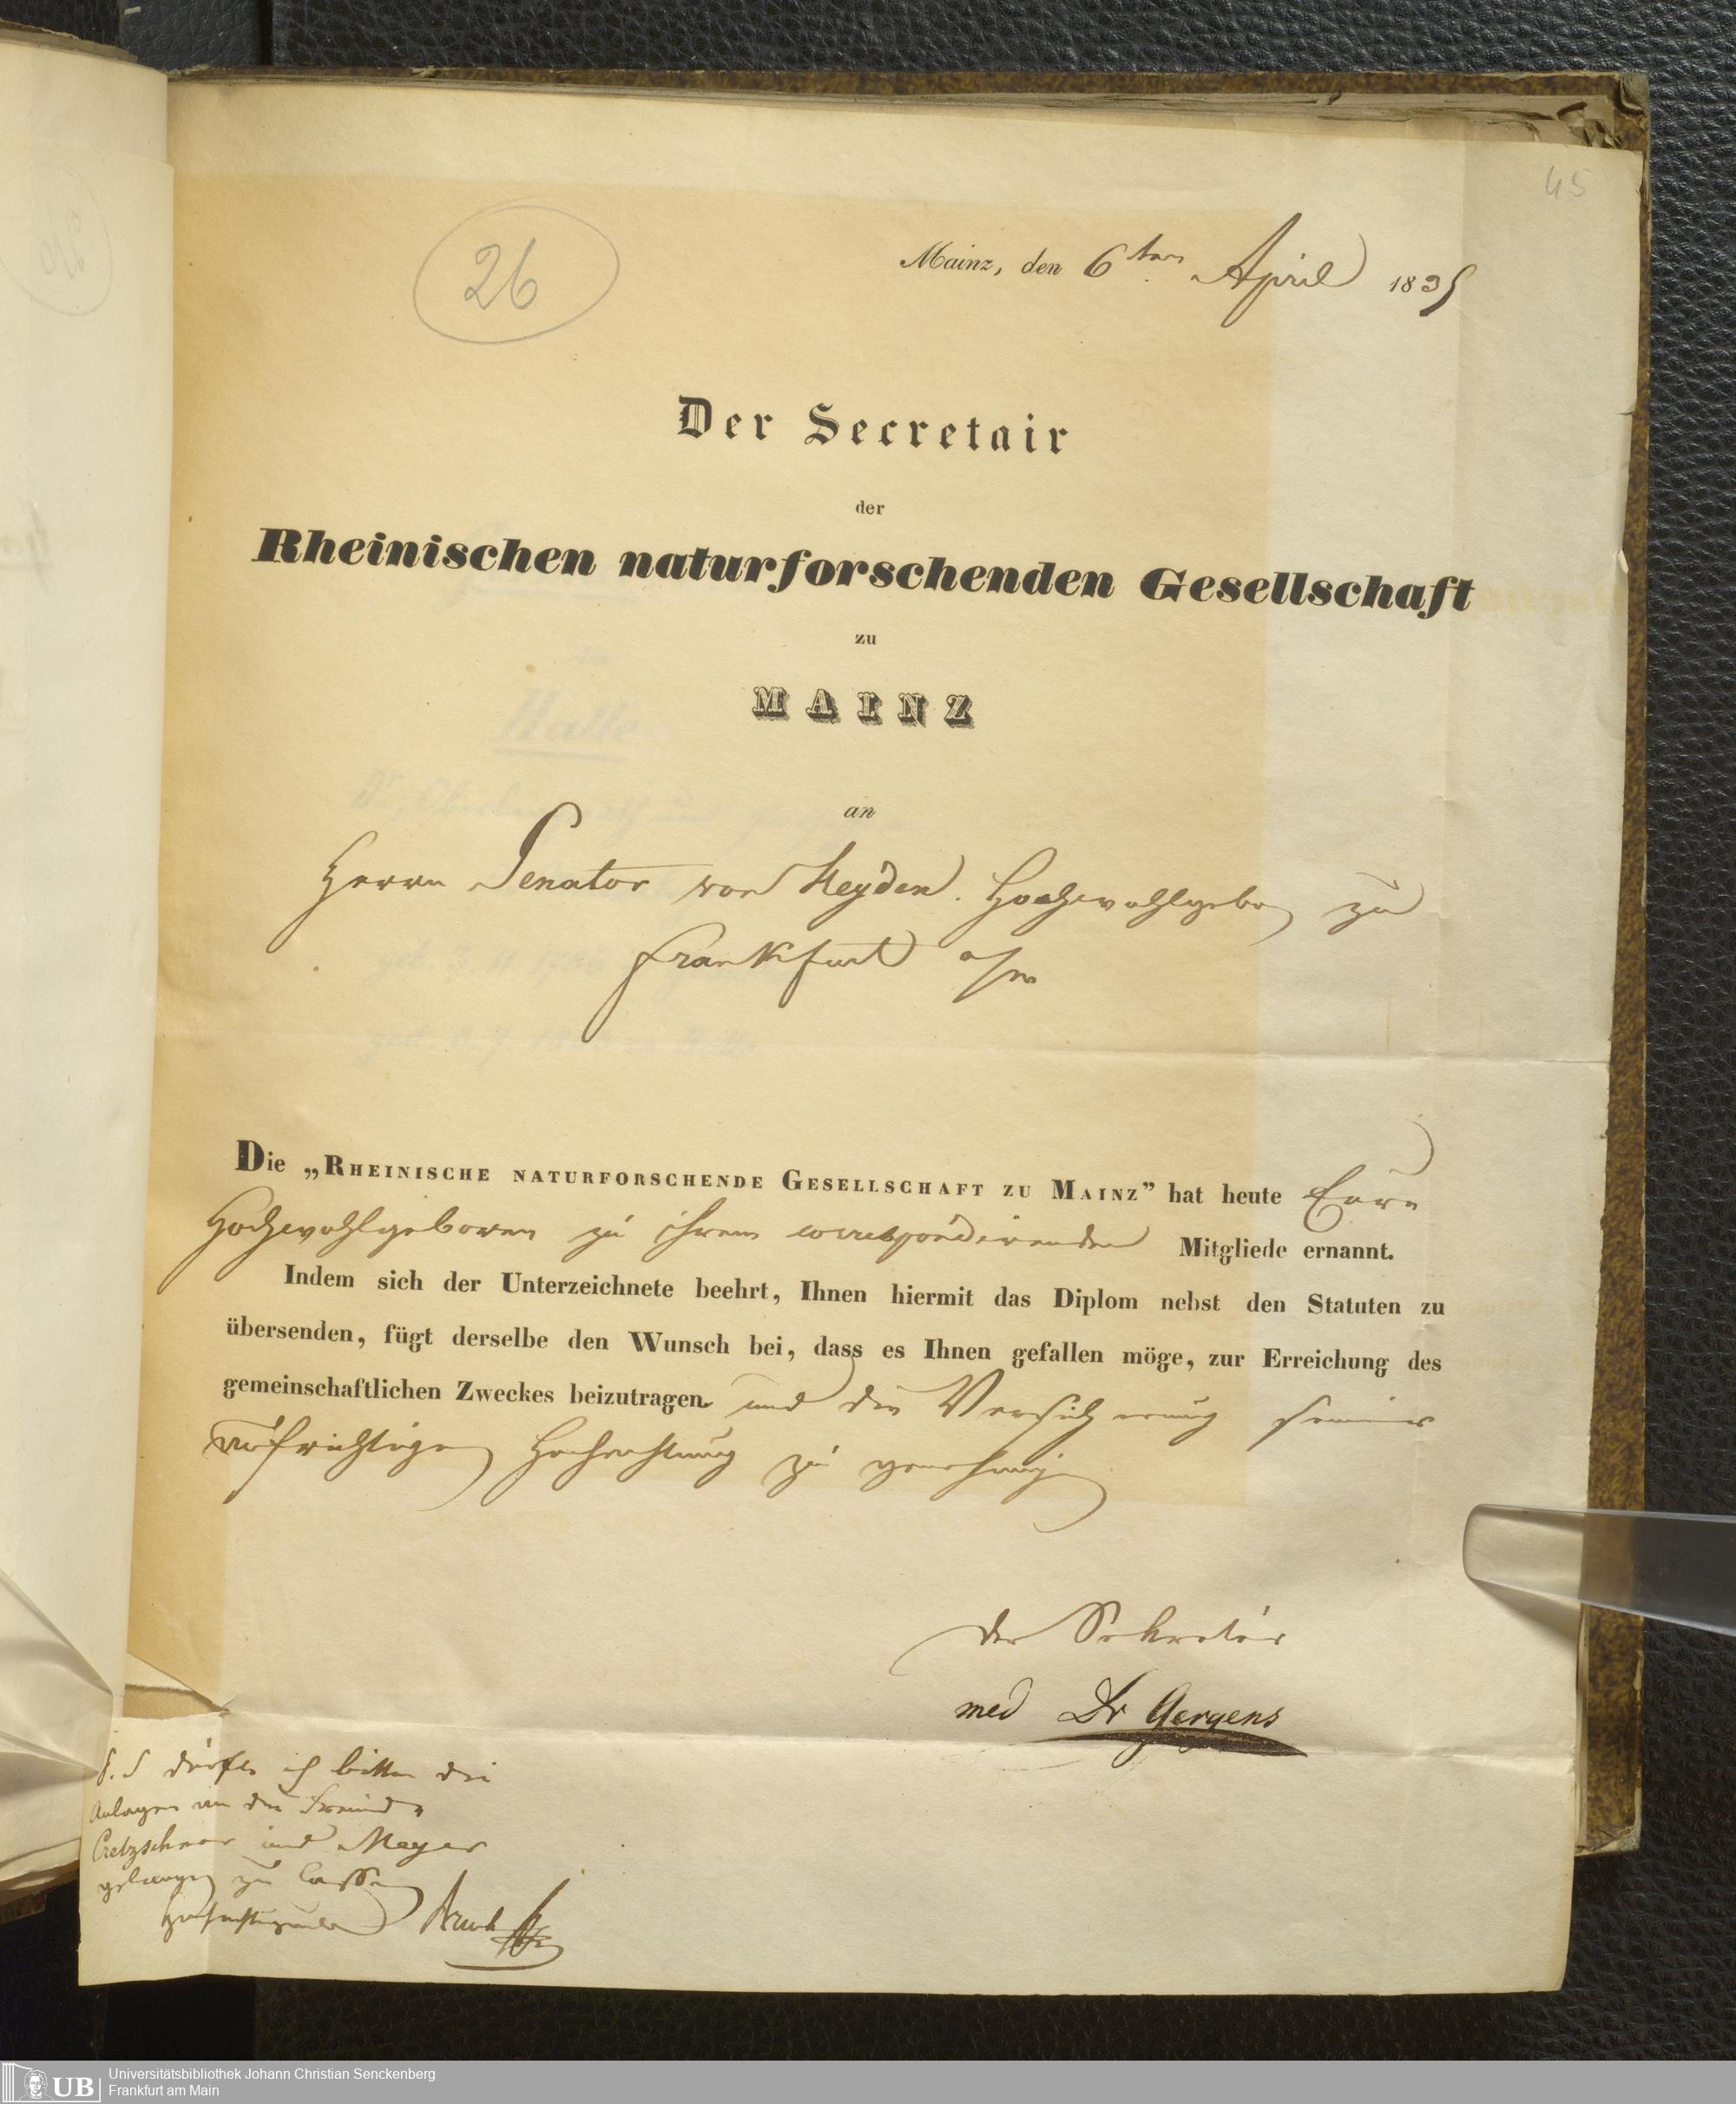 45
26
Mainz, den 6ten April 1835
Der Secretair
der
Rheinischen naturforschenden Gesellschaft
zu
MAINZ
an
Herrn Senator von Heyden. Hochwohlgeboren zu
Frankfurt a/m
Die „Rheinische naturforschende Gesellschaft zu Mainz” hat heute Euer
Hochwohlgeboren zu ihrem correspondirenden Mitgliede ernannt.
Indem sich der Unterzeichnete beehrt, Ihnen hiermit das Diplom nebst den Statuten zu
übersenden, fügt derselbe den Wunsch bei, dass es Ihnen gefallen möge, zur Erreichung des
gemeinschaftlichen Zweckes beizutragen und die Versicherung seiner
aufrichtigen Hochachtung zu genehmigen
Der Sekretär
med Dr Gergens
P. S dürfte ich bitten die
Anlagen an die Freunde
Cretzschmar und Meyer
gelangen zu lassen
UB
Universitätsbibliothek Johann Christian Senckenberg
Frankfurt am Main